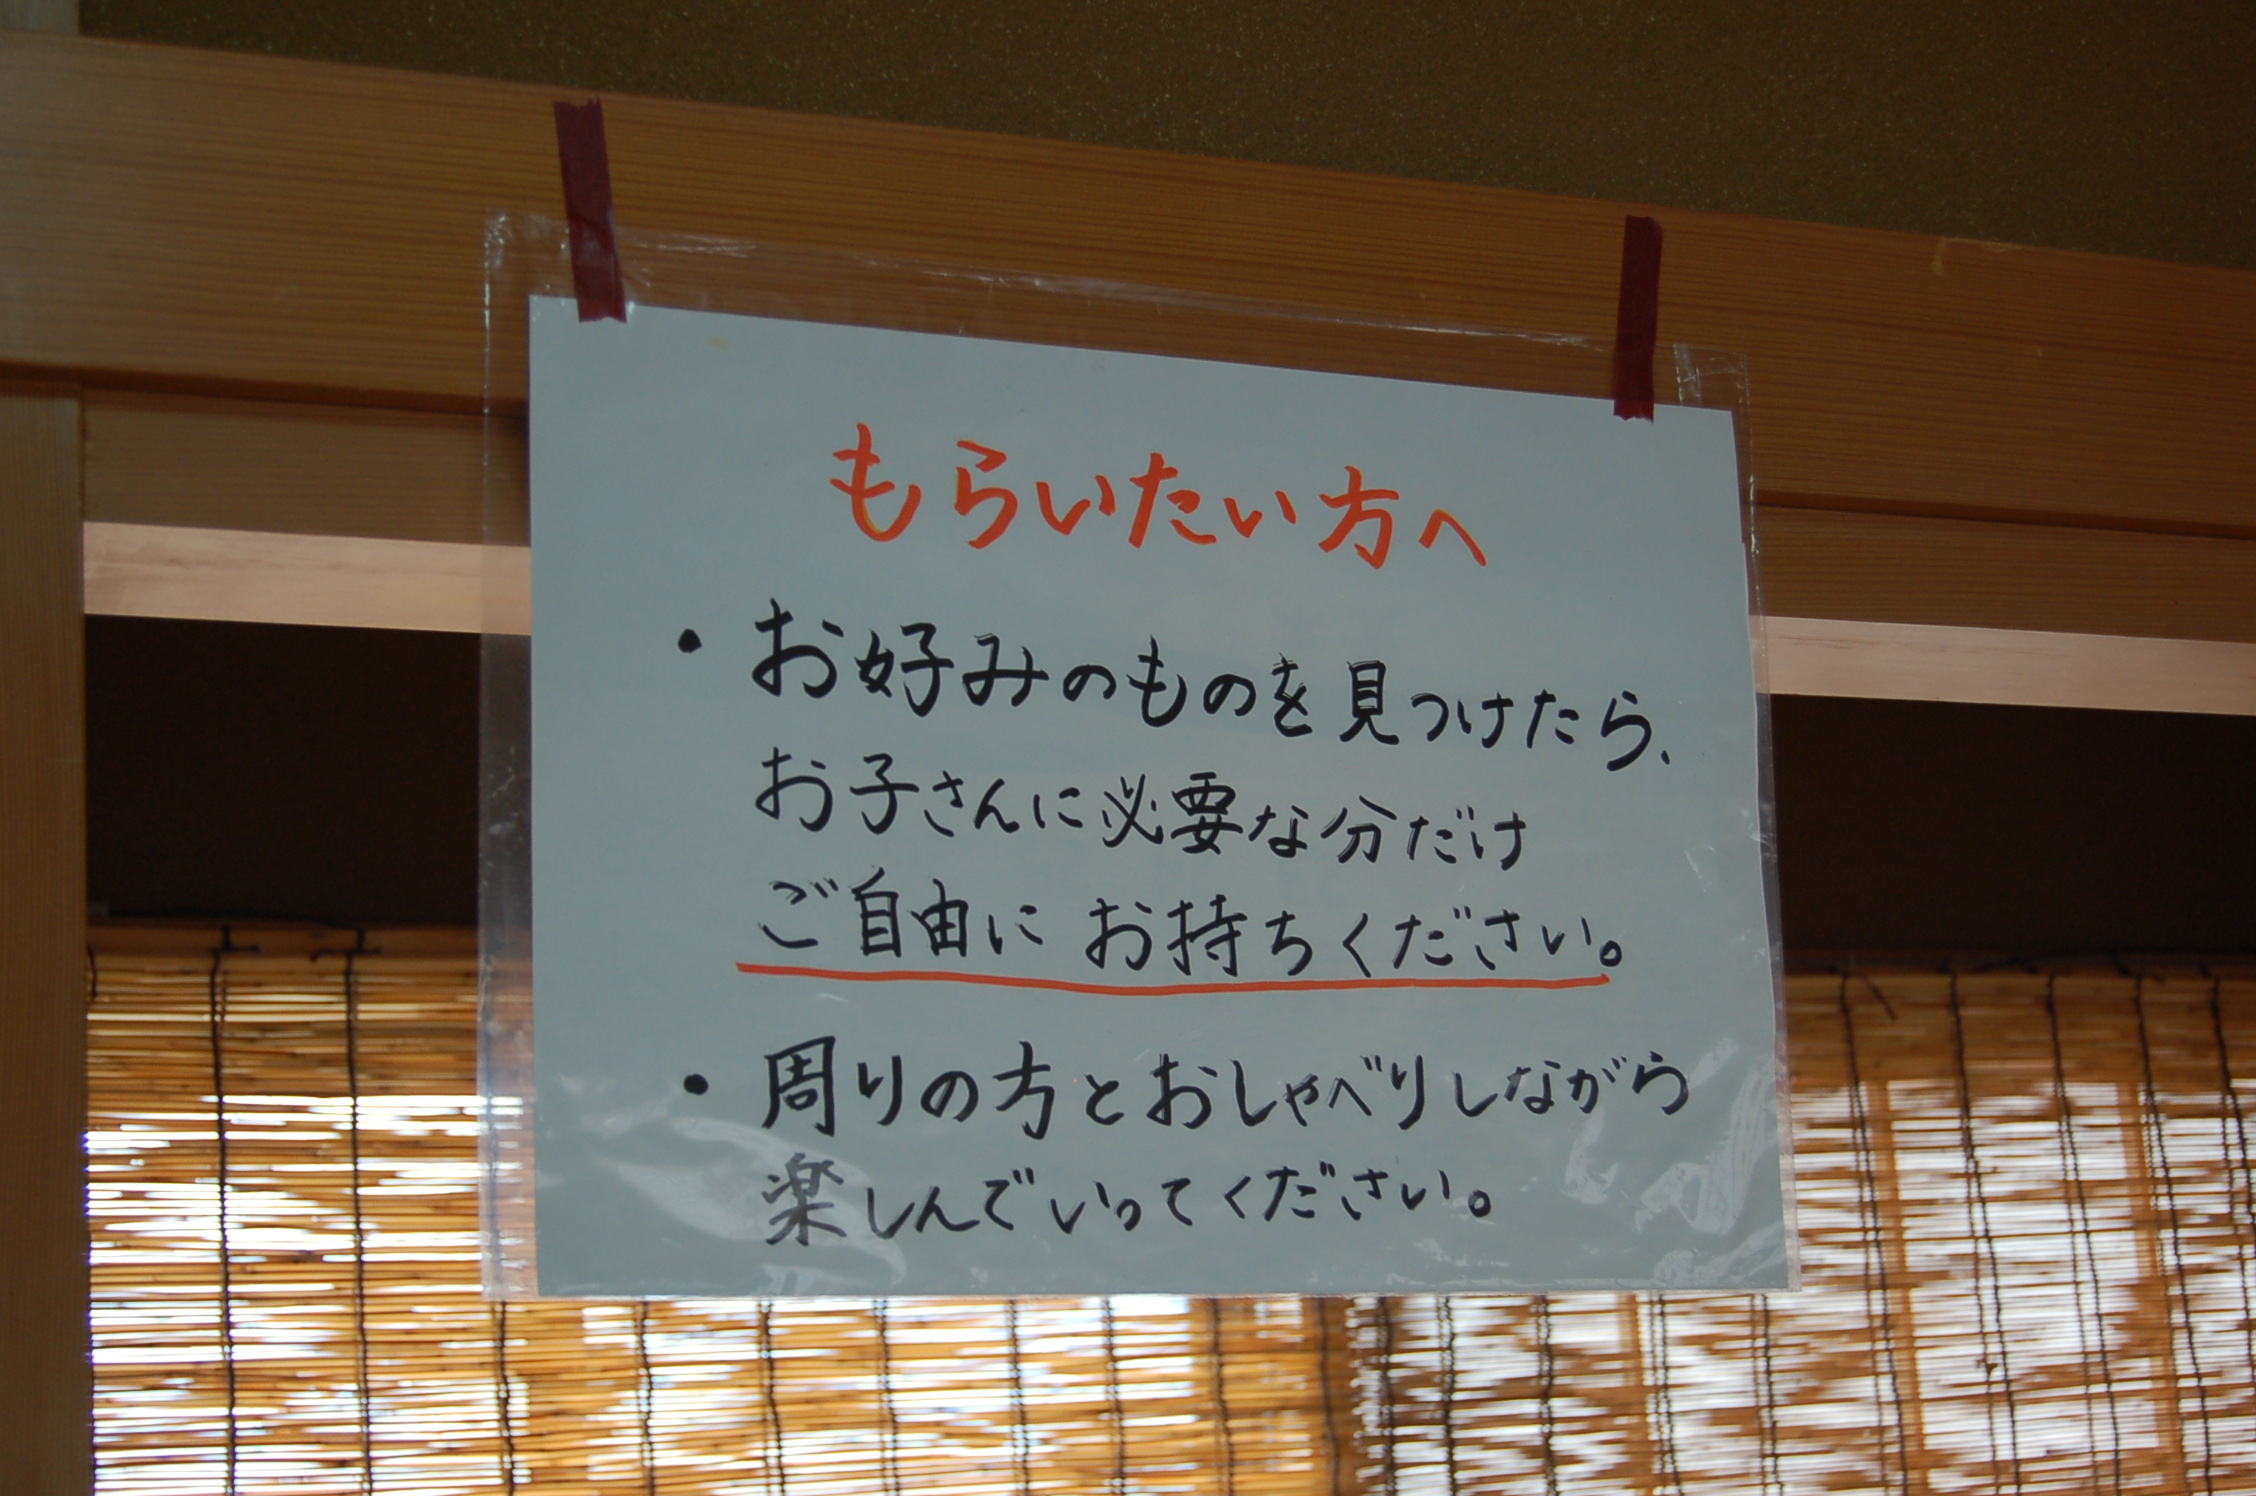 もらいたい方へ
・お好みのものを見つけたら、
お子さんに必要な分だけ
ご自由にお持ちください。
・周りの方とおしゃべりしながら
楽しんでいってください。